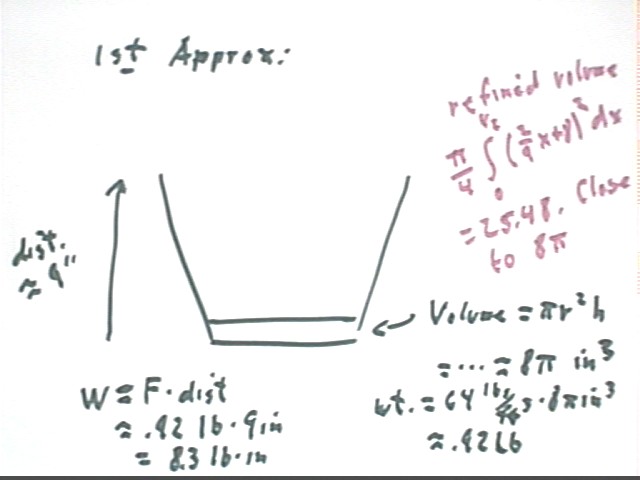 1st Approx:
refined volume
π/4 ∫₀^½ (2/9 x+8)² dx
= 25.48. Close
to 8π
dist.
≈ 9"
Volume = πr²h
= ... ≈ 8π in³
wt. = 64 lbs/ft³ · 8π in³
≈ .92 lb
W = F · dist
≈ .92 lb · 9in
= 8.3 lb · in